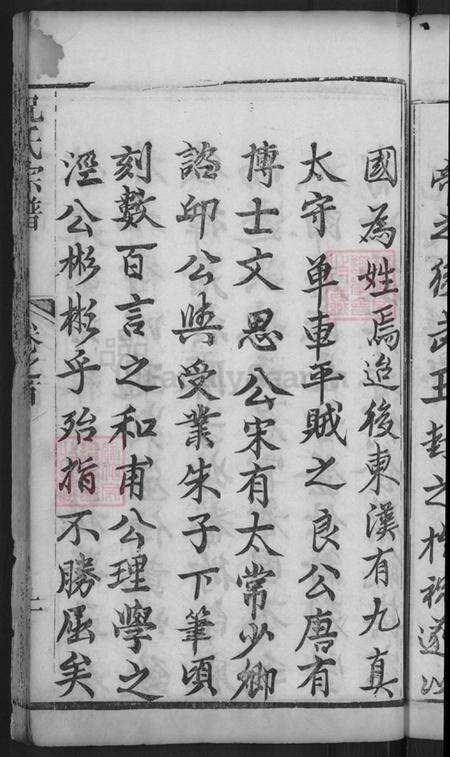 帝之後武王封之於祝遂以
國為姓焉迨後東漢有九真
太守单車平賊之良公唐有
博士文思公宋有太常少卿
諮卬公與受業朱子下筆頃
刻數百言之和甫公理學之
涇公彬彬乎殆指不勝屈矣
祝氏宗譜
卷之首
FamilySearch